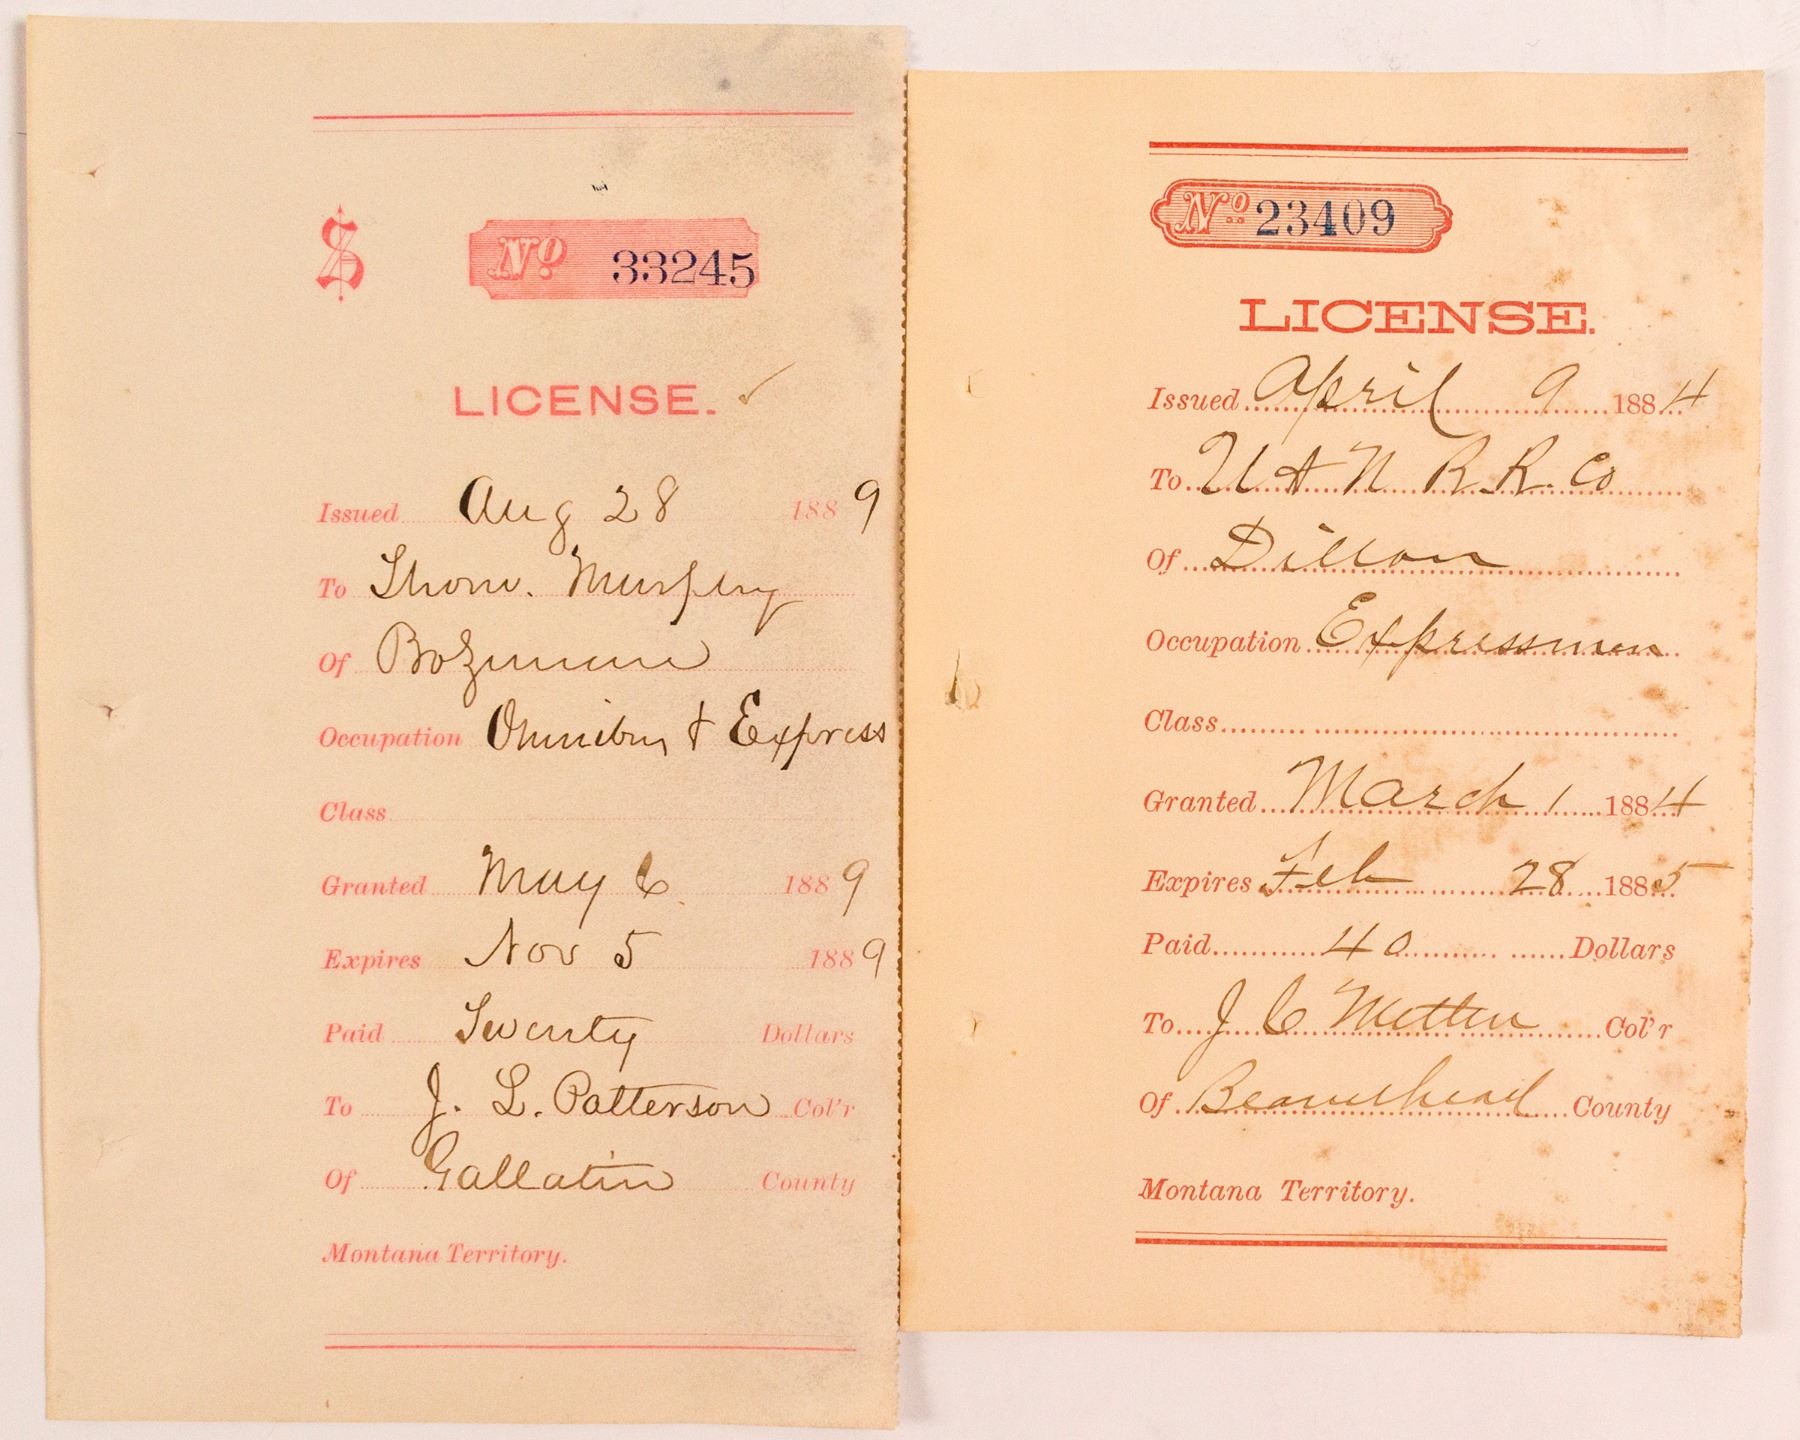 $ No 33245
LICENSE.
Issued Aug 28 1889
To Thom. Murphy
Of Bozeman
Occupation Omnibus & Express
Class
Granted May 6 1889
Expires Nov 5 1889
Paid Twenty Dollars
To J. L. Patterson Col'r
Of Gallatin County
Montana Territory.
No 23409
LICENSE.
Issued April 9 1884
To U & N R.R. Co
Of Dillon
Occupation Expressmen
Class
Granted March 1 1884
Expires Feb 28 1885
Paid 40 Dollars
To J C Metlen Col'r
Of Beaverhead County
Montana Territory.